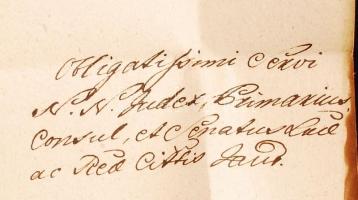 Obligatissimi Servi
N. N. Judex, Primarius
Consul, et Senatus Lud
ac Reg Cittis Jaur.